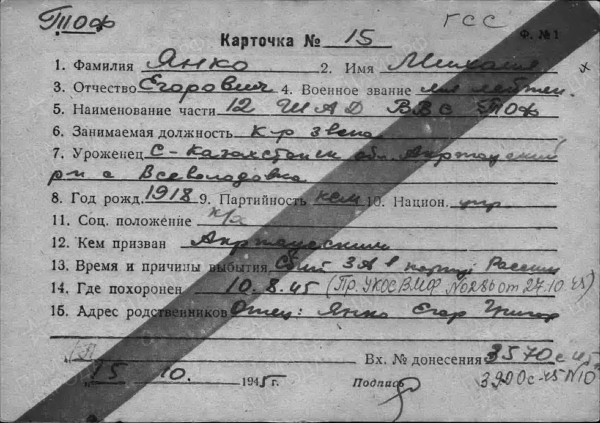 ТОФ
ГСС
Карточка № 15 Ф. № 1
1. Фамилия Янко 2. Имя Михаил
3. Отчество Егорович 4. Военное звание мл лейтен.
5. Наименование части 12 ШАД ВВС ТОФ
6. Занимаемая должность к-р звена
7. Уроженец С-Казахстанск обл.
р-н с Всеволодовка
8. Год рожд. 1918 9. Партийность 10. Национ. укр.
11. Соц. положение
12. Кем призван
13. Время и причины выбытия Сбит ЗА в Рассин
14. Где похоронен 10.8.45 (Пр. УКОС ВМФ №0286 от 27.10.45)
15. Адрес родственников Отец: Янко Егор Григор
Вх. № донесения 3570 с-45
15 10. 1945 г. Подпись 3900с-45 №10